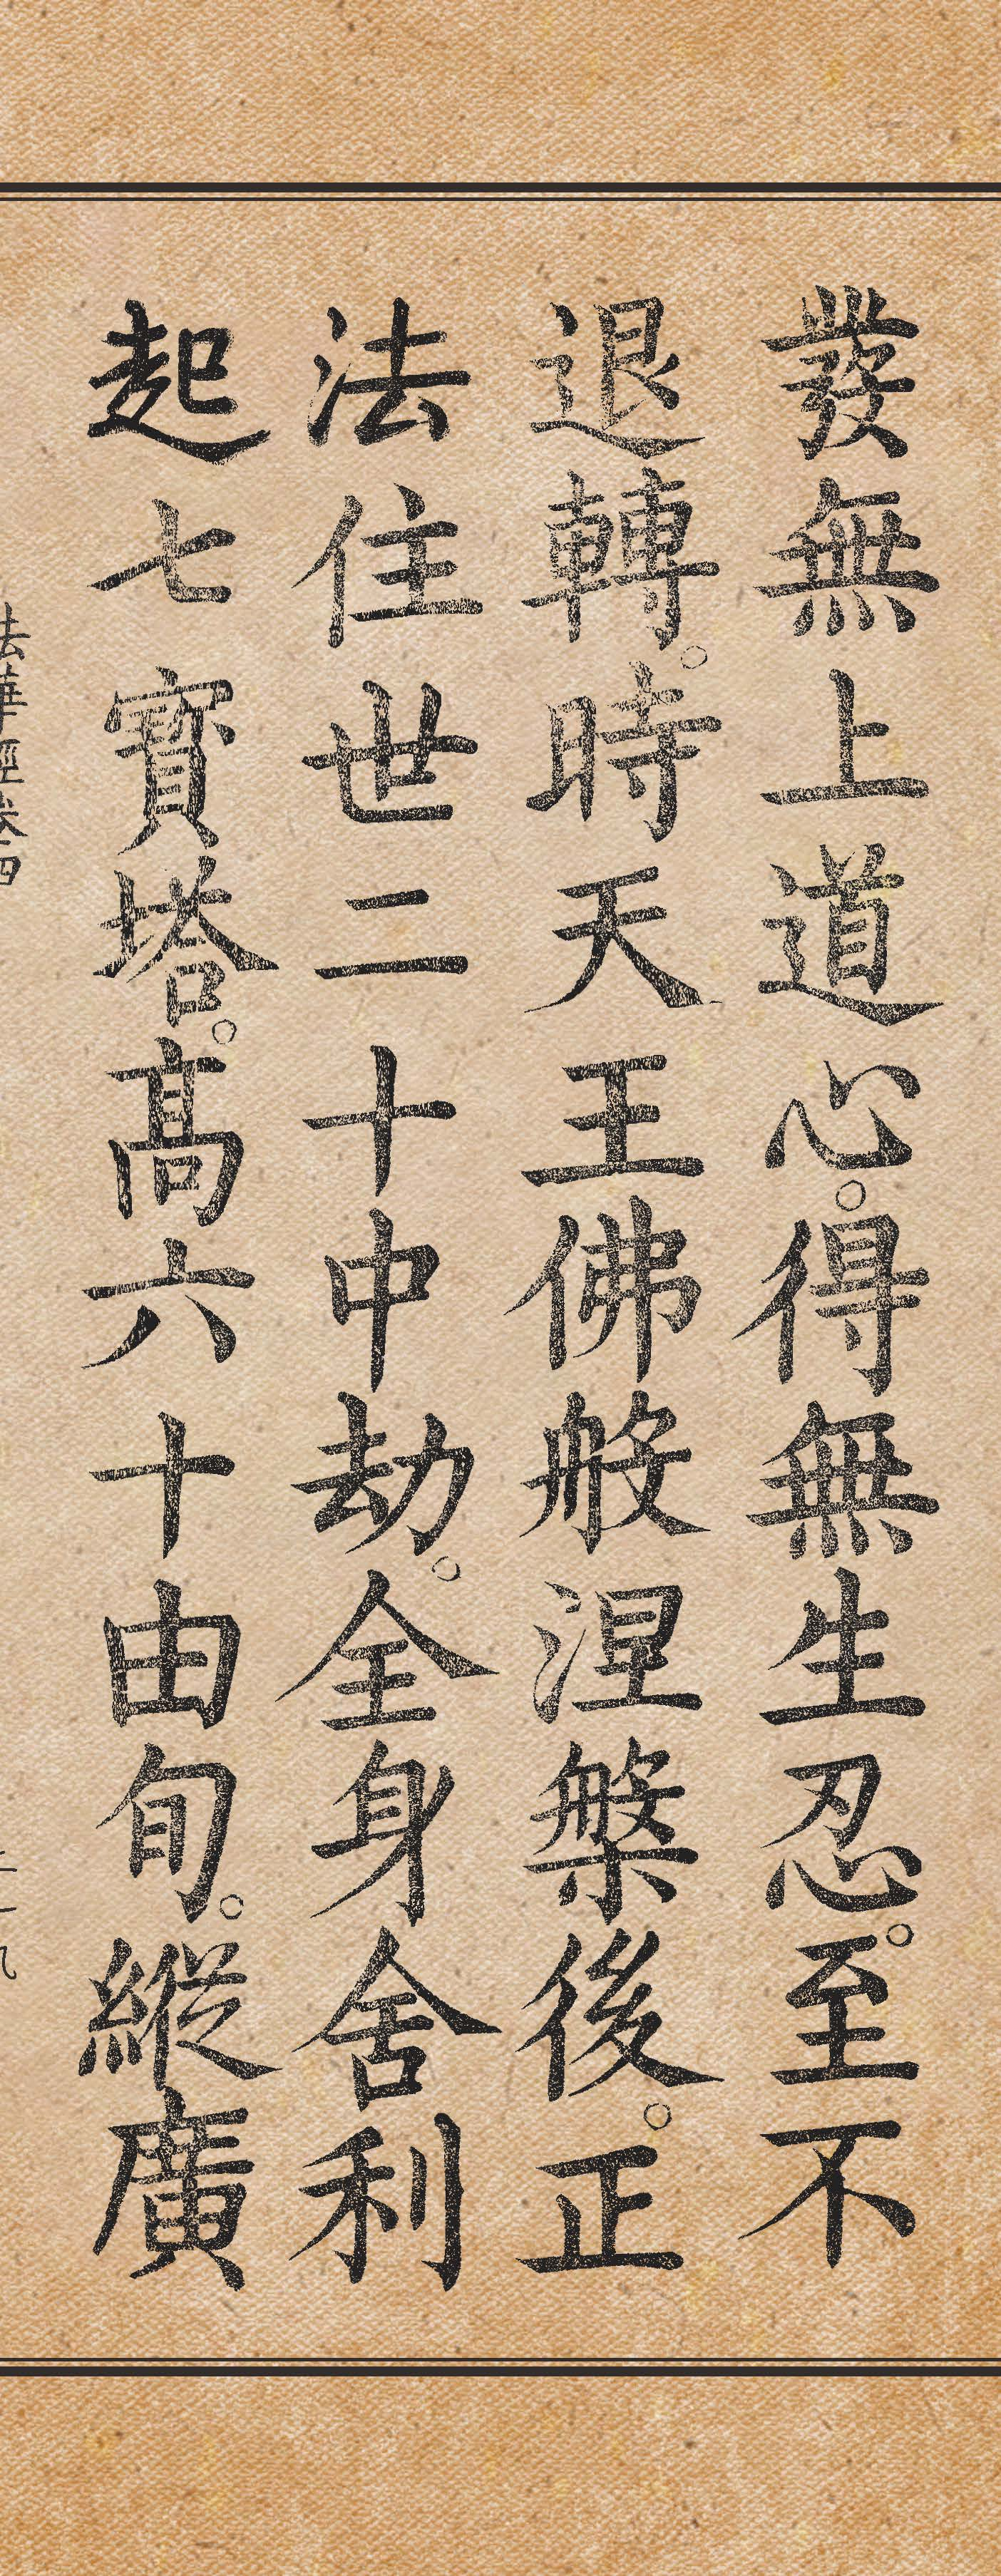 發無上道心。得無生忍。至不
退轉。時天王佛般涅槃後。正
法住世二十中劫。全身舍利
起七寶塔。高六十由旬。縱廣
法華經卷四